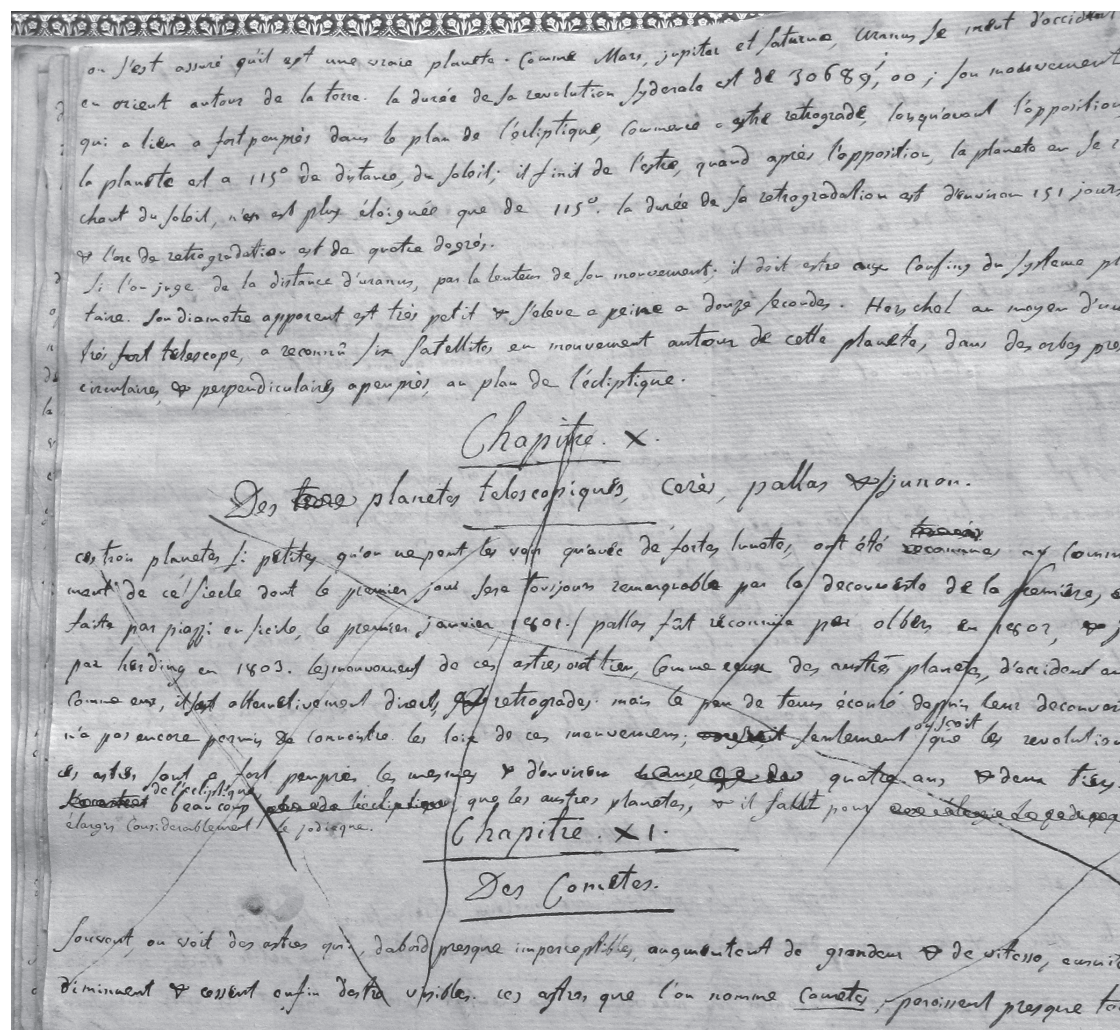 on s'est assuré qu'il est une vraie planete. Comme Mars, jupiter et saturne, Uranus se meut d'occident
en orient autour de la terre. la durée de sa revolution syderale est de 30689,00; son mouvement
qui a lieu a fort peu près dans le plan de l'écliptique, Commence a estre retrograde, lorsqu'avant l'opposition
la planete est a 115° de distance, du soleil; il finit de l'estre, quand après l'opposition, la planete en se r
chant du soleil, n'en est plus éloignée que de 115°. la durée de sa retrogradation est d'environ 151 jours
& l'arc de retrogradation est de quatre degrés.
Si l'on juge de la distance d'uranus, par la lenteur de son mouvement; il doit estre aux Confins du système pl
taire. Son diametre apparent est très petit & s'eleve a peine a douze secondes. Herschel au moyen d'u
très fort telescope, a reconnû six satellites en mouvement autour de cette planete, dans des orbes pre
circulaires, & perpendiculaires a peu près, au plan de l'écliptique.
Chapitre. X.
Des planetes telescopiques, cerès, pallas & junon.
ces trois planetes si petites qu'on ne peut les voir qu'avec de fortes lunetes, ont été reconnues au comm
ment de ce siecle dont le premier jour sera toujours remarquable par la decouverte de la premiere,
faite par piazzi en sicile, le premier janvier 1801. pallas fût reconnüe par olbers en 1802, & j
par harding en 1803. les mouvement de ces astres ont lieu, Comme ceux des autres planetes, d'occident en
Comme eux, ils sont alternativement directs, retrogrades. mais le peu de tems écoulé depuis leur decouver
n'a pas encore permis de connoitre les loix de ces mouvemens; seulement on scait que les revolution
ces astres sont a fort peu près les mesmes & d'environ quatre ans & deux tiers.
de l'écliptique
beaucoup que les autres planetes, & il fallût pour
élargir Considerablement le zodiaque.
Chapitre. XI.
Des Cometes.
Souvent, on voit des astres qui, d'abord presque imperceptibles, augmentent de grandeur & de vitesse, ensuite
diminuent & cessent enfin d'estre visibles. ces astres que l'on nomme Cometes, paroissent presque to